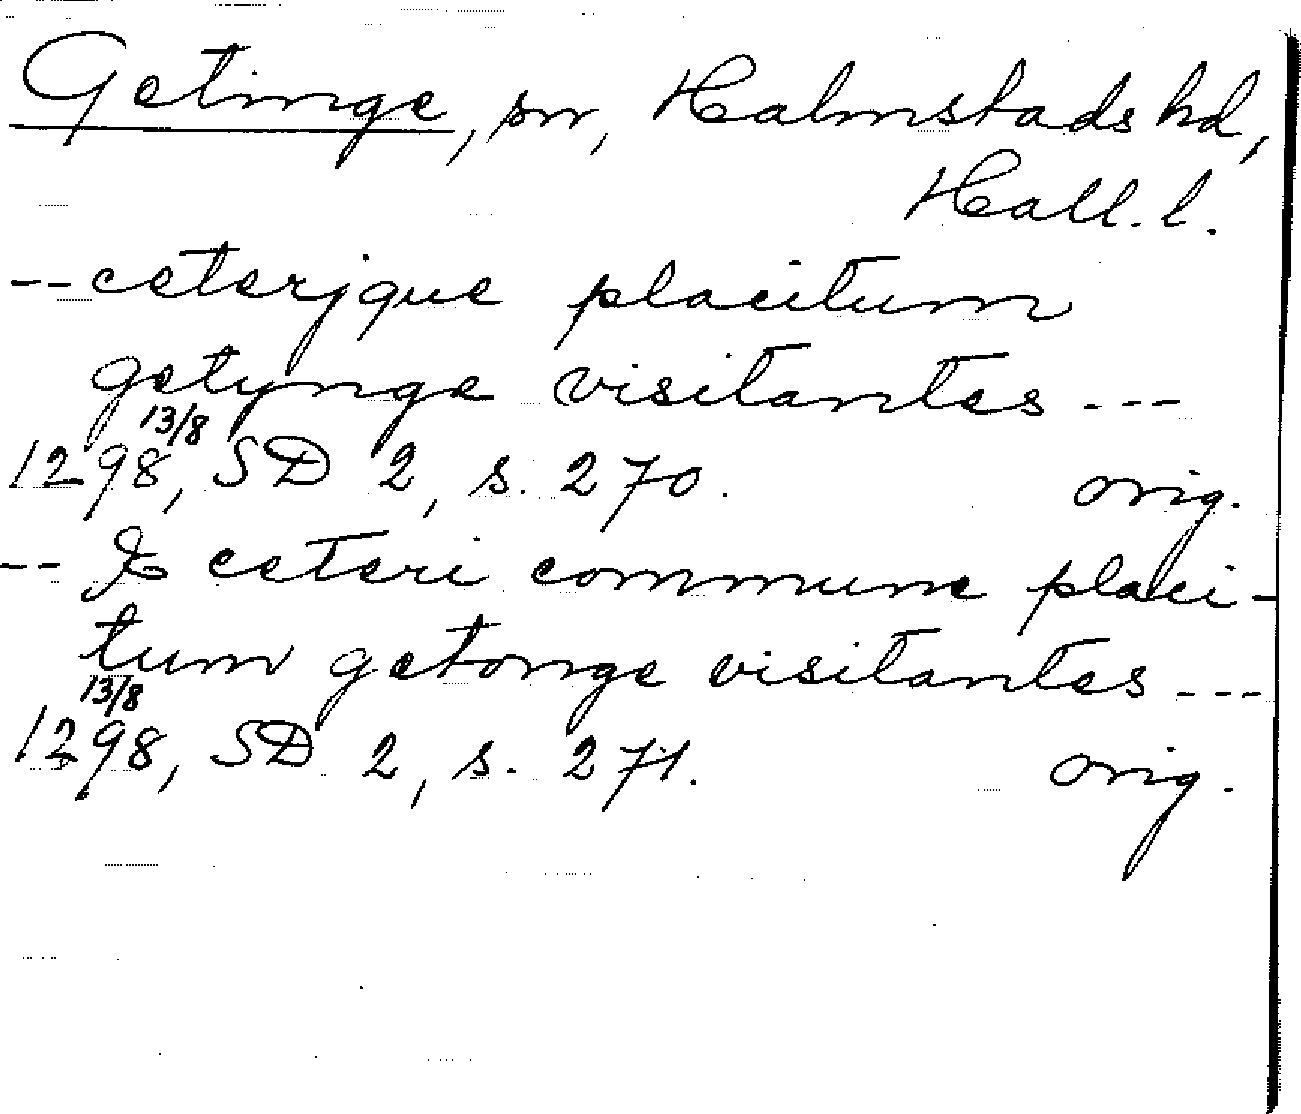 Getinge, sn, Halmstads hd,
Hall. l.
-- ceterjque placitum
getynge visitantes ---
13/8
1298, SD 2, s. 270. orig.
-- & ceteri commune placi-
tum getonge visitantes ---
13/8
1298, SD 2, s. 271. orig.